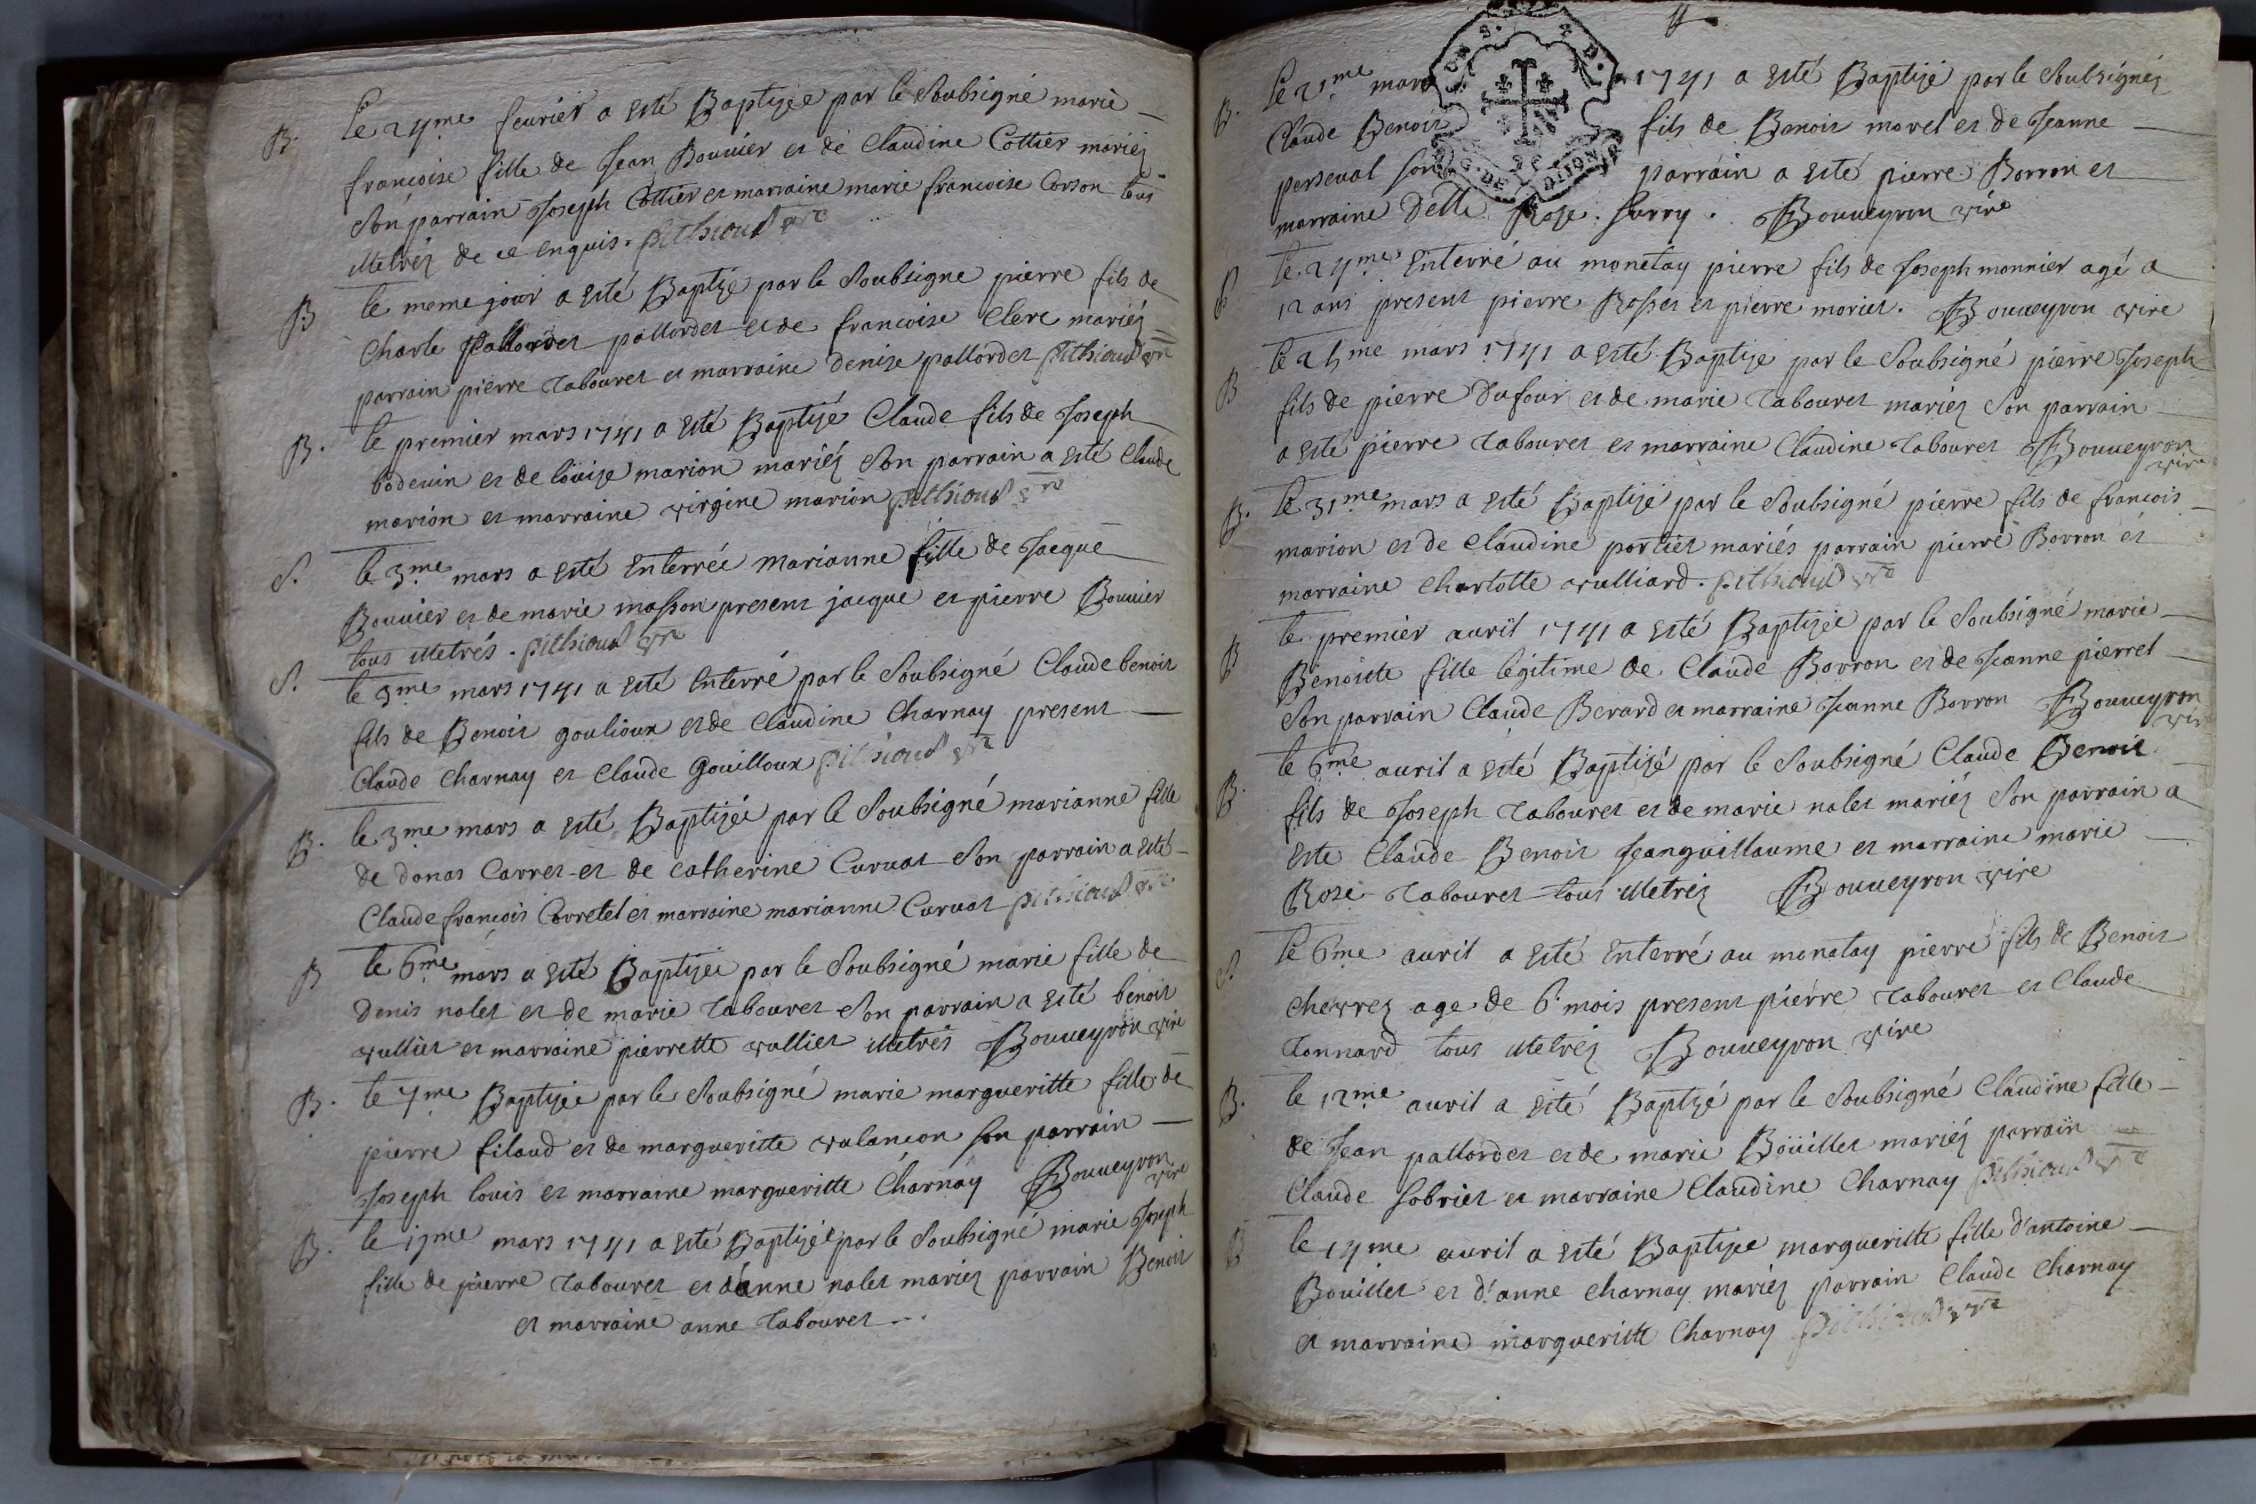 B. le 24me feurier a esté Baptizée par le Soubsigné marie
francoise fille de Jean Bouuier et de Claudine Cottier mariéz
Son parrain Joseph Cottier et marraine marie francoise Corson tous
illetréz de ce enquis. pithioud vre
B le meme jour a esté Baptizé par le Soubsigne pierre fils de
Charle pallordet et de francoise Clerc mariéz
parrain pierre Tabouret et marraine denise pallordet pithioud vre
B. le premier mars 1741 a esté Baptizé Claude fils de Joseph
bodeuin et de loüise marion mariéz Son parrain a esté Claude
marion et marraine virgine marion pithioud vre
S. le 3me mars a esté Enterrée marianne fille de Jacque
Bouuier et de marie masson present jacque et pierre Bouuier
tous illetrés. pithioud vre
S. le 3me mars 1741 a esté Enterré par le Soubsigné Claude benoit
fils de Benoit goulioux et de Claudine Charnay present
Claude Charnay et Claude Gouilloux pithioud vre
B. le 3me mars a esté Baptizée par le Soubsigné marianne fille
de donat Carret et de Catherine Curuat Son parrain a esté
Claude francois Corretel et marraine marianne Curuat pithioud vre
B le 6me mars a esté Baptizée par le Soubsigné marie fille de
Denis nalet et de marie Tabouret Son parrain a esté benoit
vulliet et marraine pierrette vulliet illetrés Bouueyron vire
B. le 7me Baptizée par le Soubsigné marie margueritte fille de
pierre filaud et de margueritte valancon son parrain
Joseph louis et marraine margueritte Charnay Bouueyron
vire
B. le 19me mars 1741 a esté Baptizée par le Soubsigné marie Joseph
fille de pierre Tabouret et d'anne nalet mariéz parrain Benoit
et marraine anne Tabouret
B. le 21me mars 1741 a esté Baptizé par le Soubsignéz
Claude Benoit fils de Benoit morel et de Jeanne
perseual son parrain a esté pierre Borron et
marraine Delle Roze Surry. Bouueyron vire
S le 24me Enterré au monetay pierre fils de Joseph monnier agé a
12 ans present pierre Rosset et pierre moriet. Bouueyron vire
B le 25me mars 1741 a esté Baptizé par le Soubsigné pierre Joseph
fils de pierre Dufour et de marie Tabouret mariéz Son parrain
a esté pierre Tabouret et marraine Claudine Tabouret Bouueyron
vire
B. le 31me mars a esté Baptizé par le Soubsigné pierre fils de francois
marion et de Claudine portier mariés parrain pierre Borron et
marraine Charlotte vulliard. pithioud vre
B le premier auril 1741 a esté Baptizée par le Soubsigné marie
Benoiste fille legitime de Claude Borron et de Jeanne pierrel
Son parrain Claude Berard et marraine Jeanne Borron Bouueyron
vire
B. le 6me auril a esté Baptizé par le Soubsigné Claude Benoit
fils de Joseph Tabouret et de marie nalet mariéz Son parrain a
este Claude Benoit Jeanguillaume et marraine marie
Roze Tabouret tous illetréz Bouueyron vire
S. le 6me auril a esté Enterré au monatay pierre fils de Benoit
chevrez age de 6 mois present pierre Tabouret et Claude
Tonnard tous illetréz Bouueyron vire
B. le 12me auril a esté Baptizé par le Soubsigné Claudine fille
de Jean pallordet et de marie Boüillet mariéz parrain
Claude Sobriet et marraine Claudine Charnay pithioud vre
B le 14me auril a esté Baptizee margueritte fille d'antoine
Bouillet et d'anne Charnay mariéz parrain Claude Charnay
et marraine margueritte Charnay pithioud vre